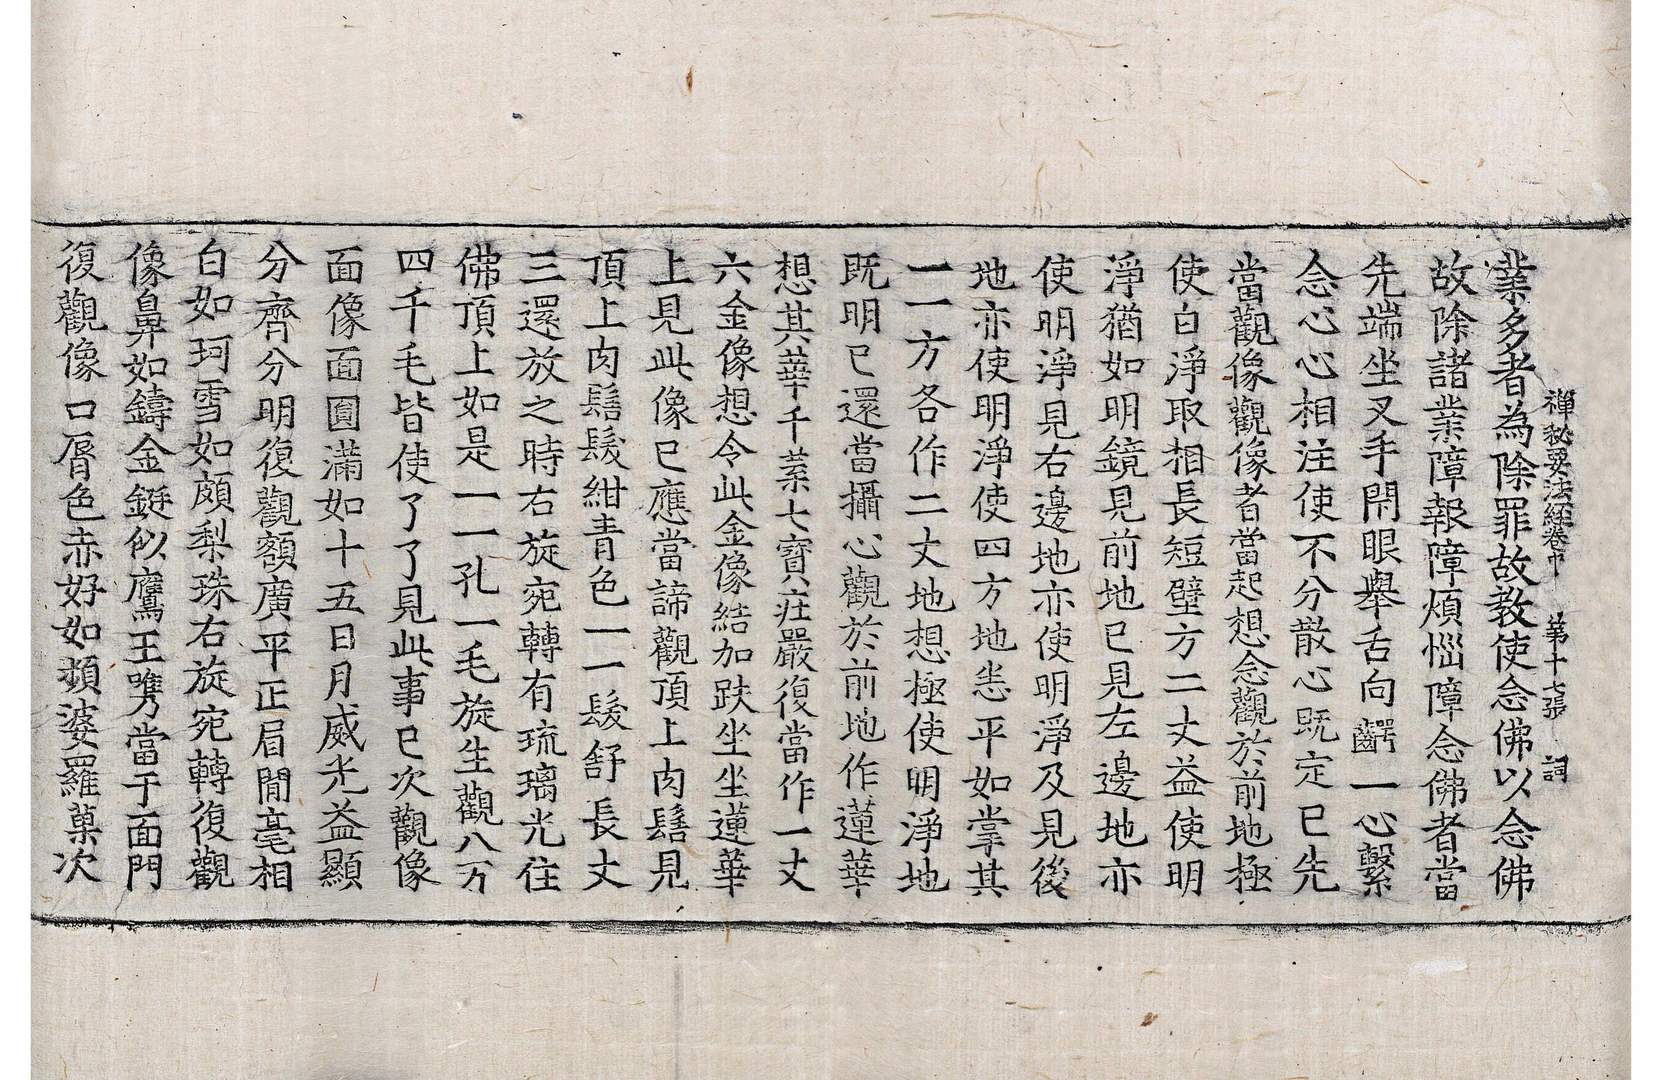 禪秘要法經卷中　第十七張　詞
業多者為除罪故教使念佛以念佛
故除諸業障報障煩惱障念佛者當
先端坐叉手閇眼舉舌向齶一心繫
念心心相注使不分散心既定已先
當觀像觀像者當起想念觀於前地極
使白淨取相長短壁方二丈益使明
淨猶如明鏡見前地已見左邊地亦
使明淨見右邊地亦使明淨及見後
地亦使明淨使四方地悉平如掌其
一一方各作二丈地想極使明淨地
既明已還當攝心觀於前地作蓮華
想其華千葉七寶莊嚴復當作一丈
六金像想令此金像結加趺坐坐蓮華
上見此像已應當諦觀頂上肉髻見
頂上肉髻髮紺青色一一髮舒長丈
三還放之時右旋宛轉有琉璃光住
佛頂上如是一一孔一毛旋生觀八万
四千毛皆使了了見此事已次觀像
面像面圓滿如十五日月威光益顯
分齊分明復觀額廣平正眉閒毫相
白如珂雪如頗梨珠右旋宛轉復觀
像鼻如鑄金鋌似鷹王㭰當于面門
復觀像口脣色赤好如頻婆羅菓次